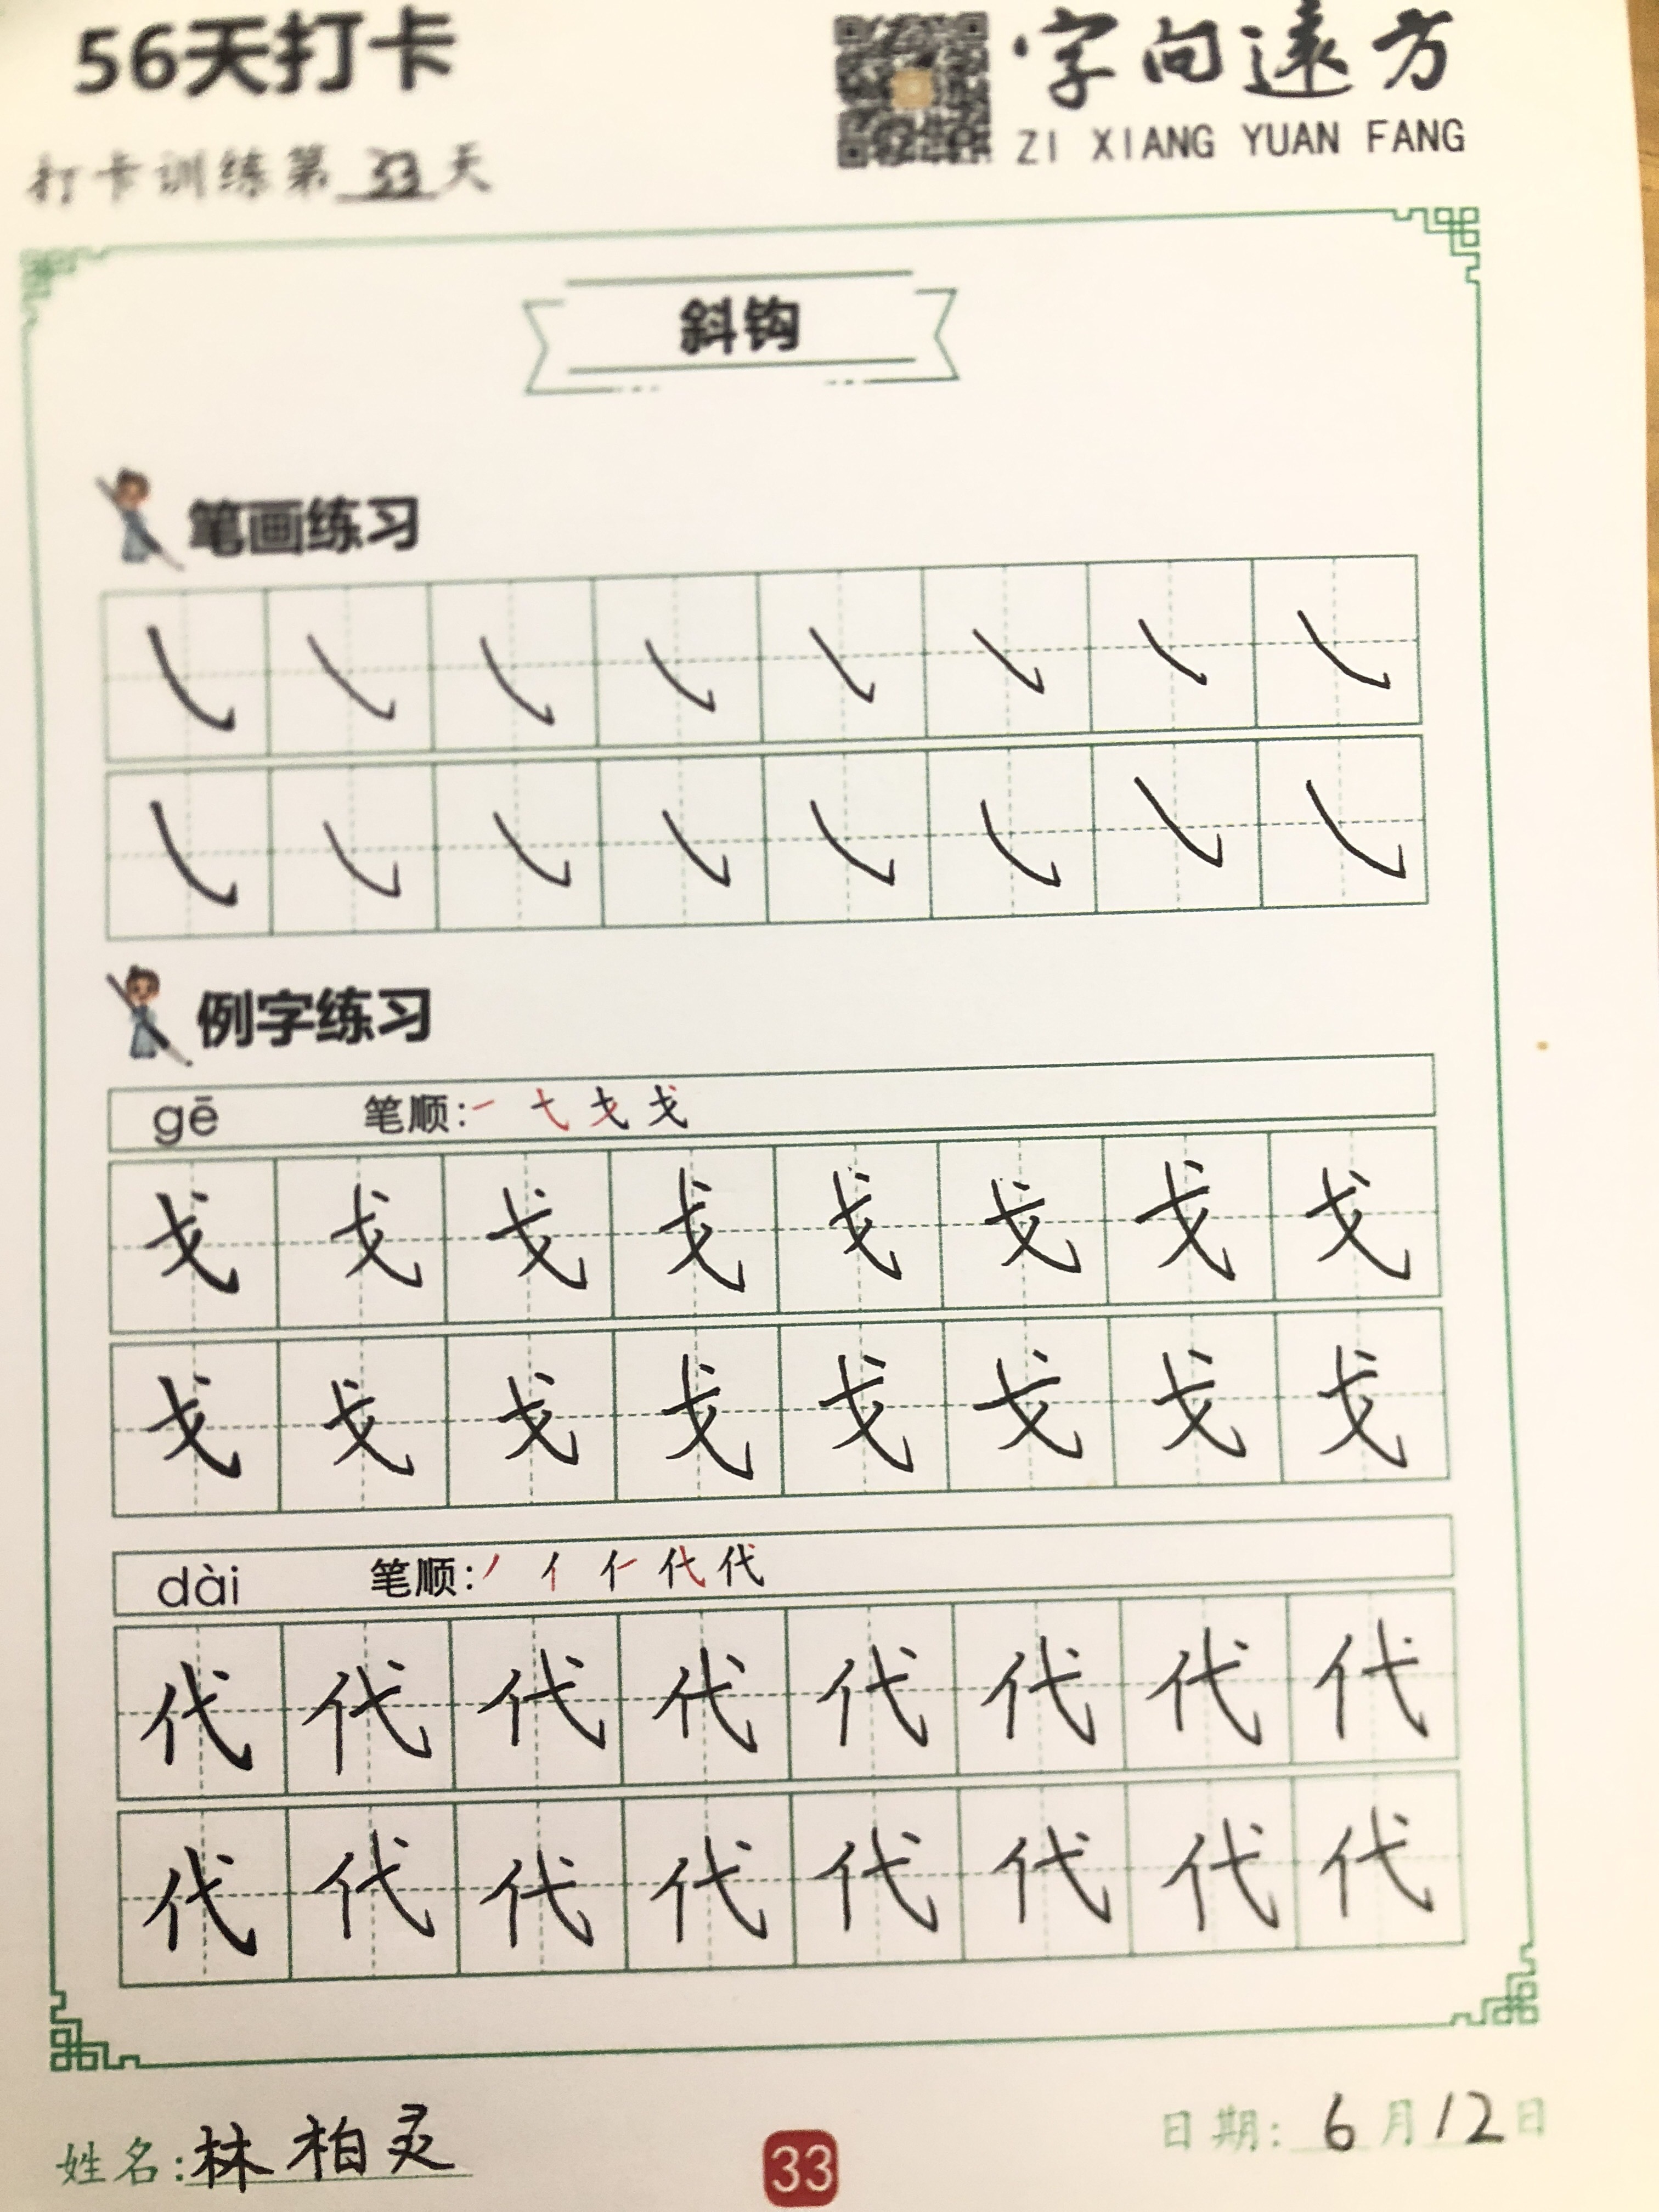 56天打卡
字向遠方
ZI XIANG YUAN FANG
打卡训练第33天
斜钩
笔画练习
例字练习
gē 笔顺：
戈 戈 戈 戈 戈 戈 戈 戈
戈 戈 戈 戈 戈 戈 戈 戈
dài 笔顺：
代 代 代 代 代 代 代 代
代 代 代 代 代 代 代 代
姓名：林柏灵
33
日期：6月12日